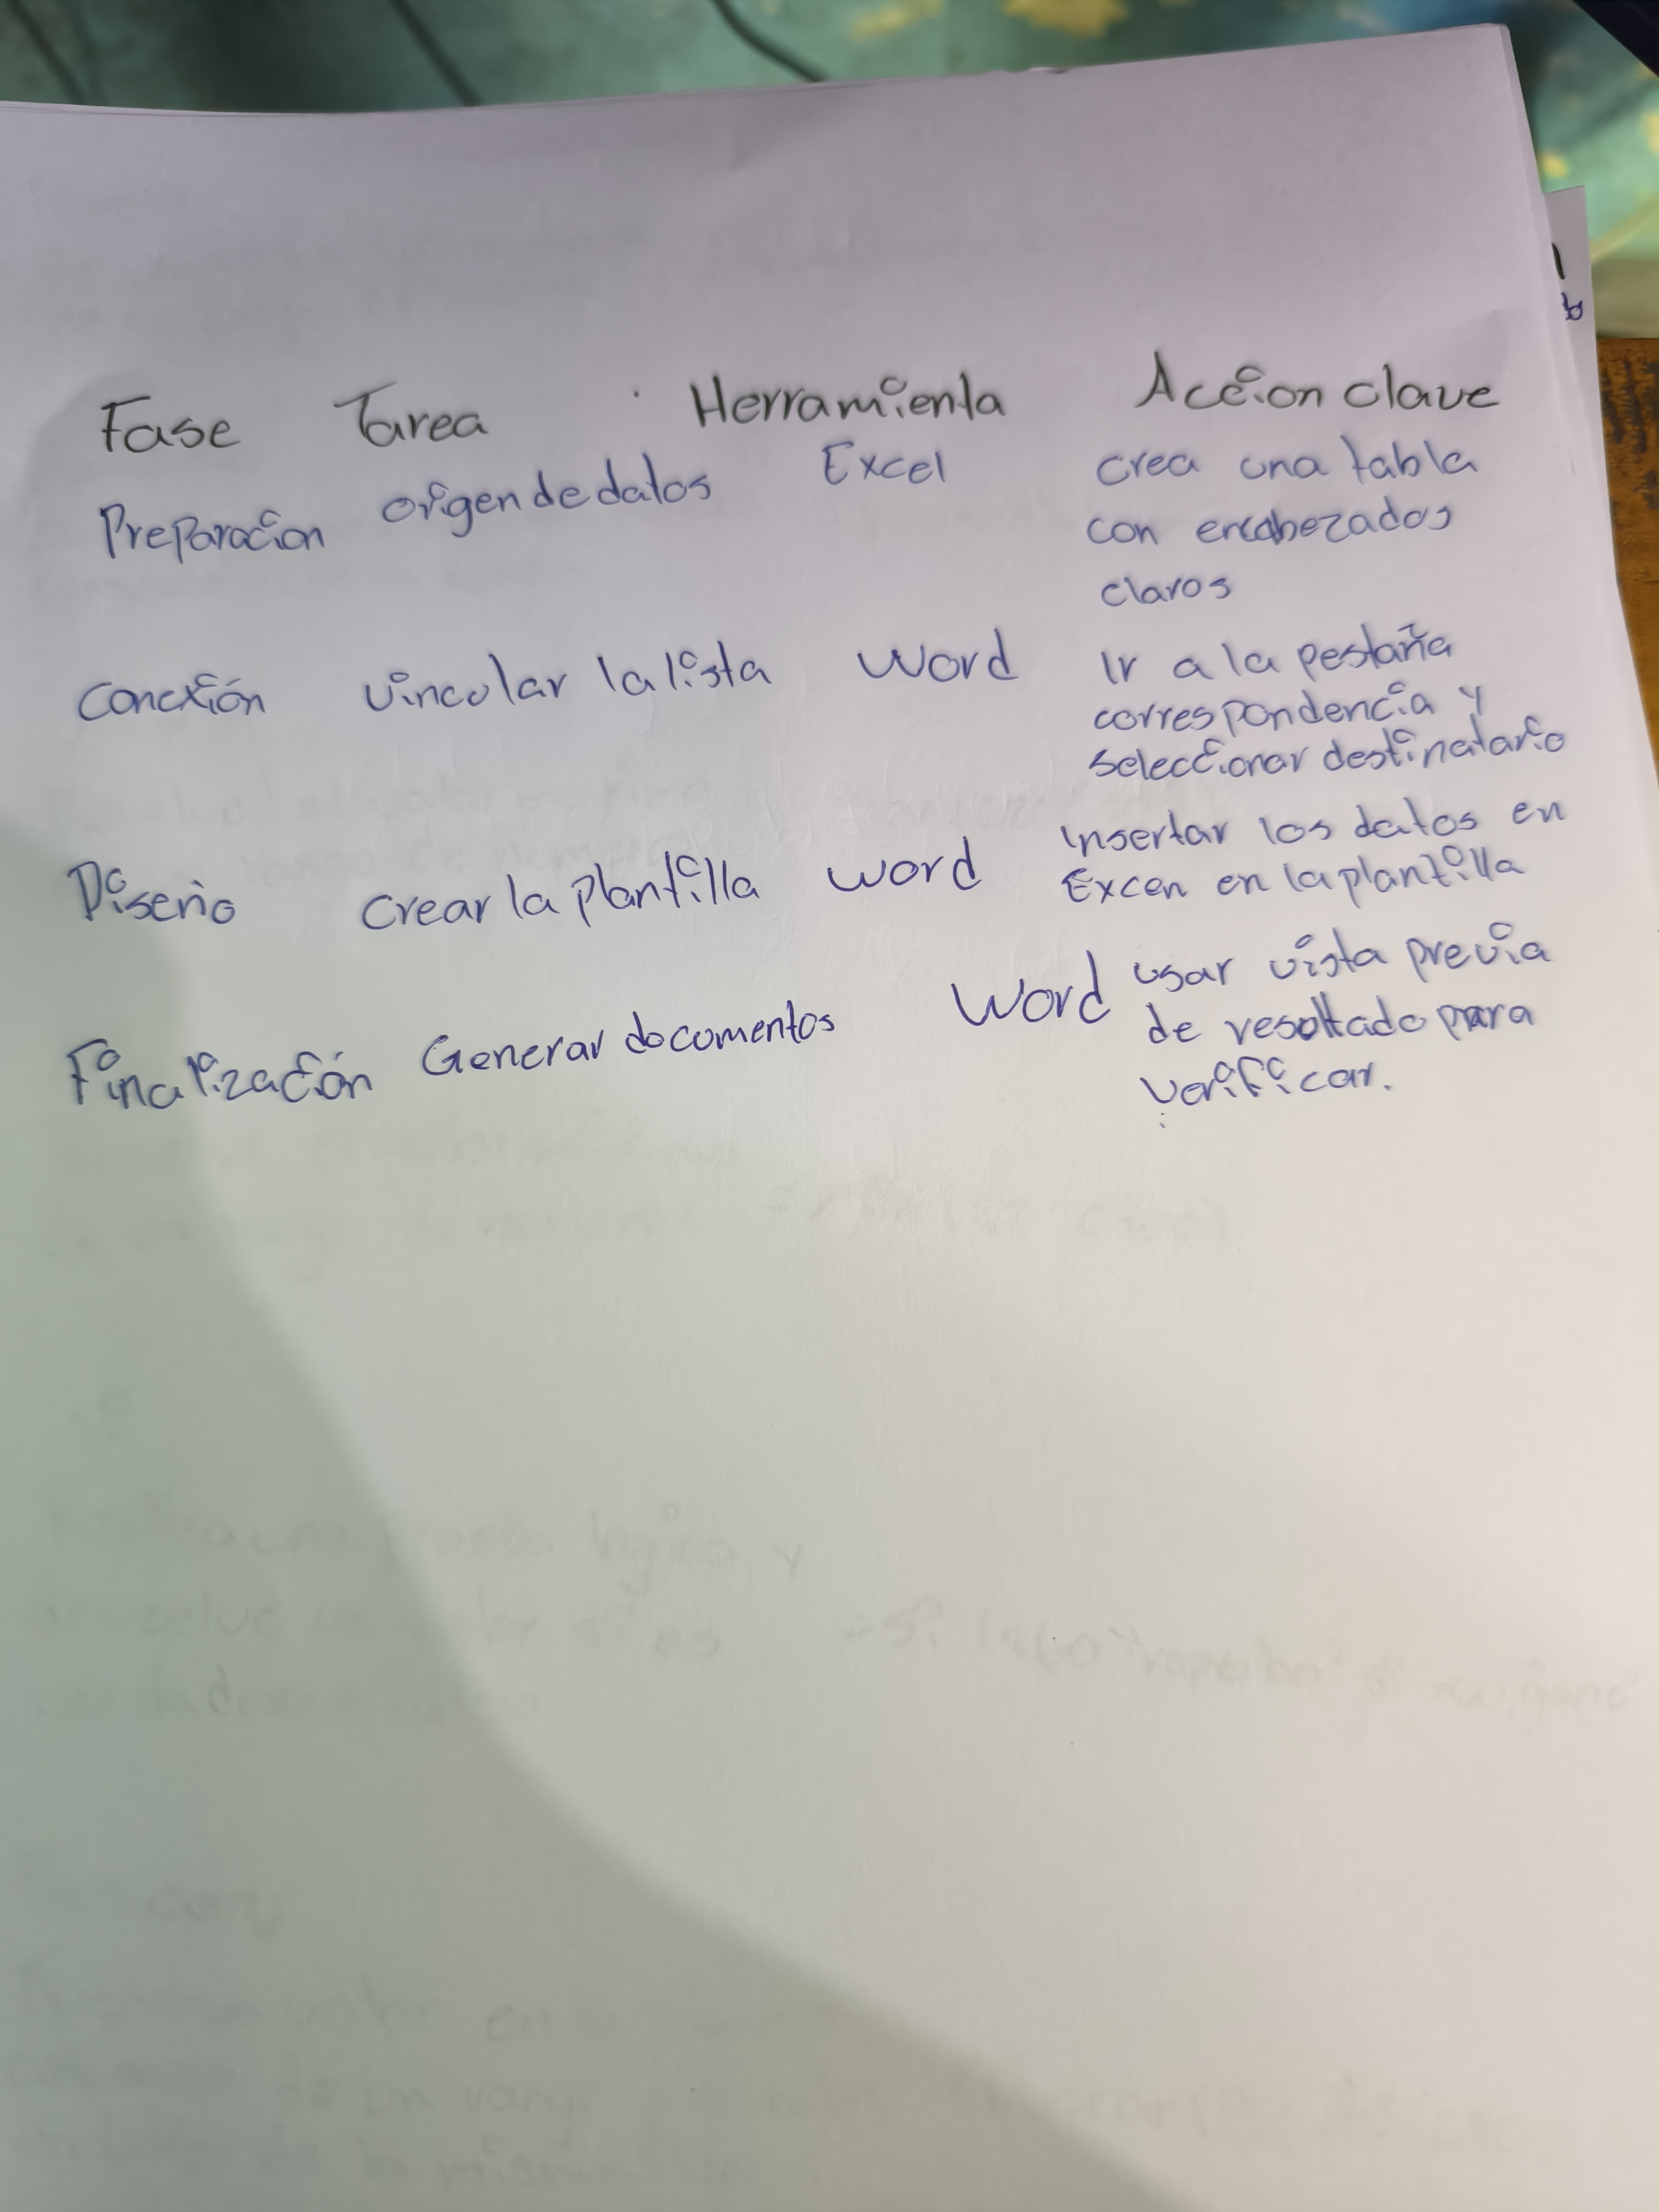 Fase Tarea Herramienta Accion clave
Preparacion origen de datos Excel crea una tabla
con encabezados
claros
Conexión vincular la lista Word Ir a la pestaña
correspondencia y
seleccionar destinatario
Diseño crear la plantilla word Insertar los datos en
Excen en la plantilla
Finalización Generar documentos Word usar vista previa
de resultado para
verificar.